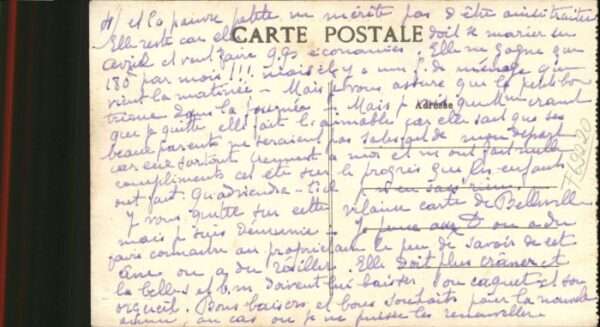 et la pauvre petite ne mérite pas d'être ainsi traitée
Elle reste car elle doit se marier en
CARTE POSTALE
avril et veut faire qqs économies. Elle ne gagne que
180 par mois !!! mais il y a une f. de ménage qui
vient la matinée - Mais je vous assure que la petite
trime dans la journée - Mais
Adresse
que je quitte, elle fait l'aimable car elle sait que ses
beaux parents ne seraient pas de mon départ
car eux surtout tiennent à moi et m'ont fait mille
compliments cet été sur le progrès que les enfants
ont fait. Qu'adviendra-t-il je n'en sais rien!
Je vous quitte sur cette vilaine carte de Belleville
mais je suis démunie -
faire connaître au propriétaire le peu de savoir de cet
âne ou a dû résilier. Elle doit plus crâner et
la belle s. et b. m. doivent lui baisser son caquet et son
orgueil. Bons baisers et bons souhaits pour la nouvelle
année, au cas où je ne puisse les renouveler